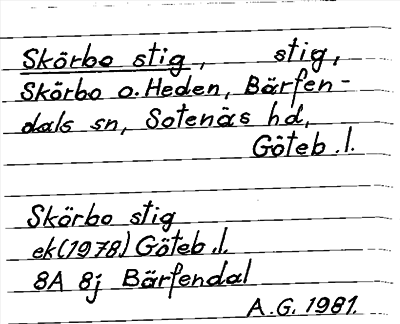 Skörbo stig, stig,
Skörbo o. Heden, Bärfen-
dals sn, Sotenäs hd,
Göteb. l.
Skörbo stig
ek (1978) Göteb. l.
8A 8j Bärfendal
A.G. 1981.